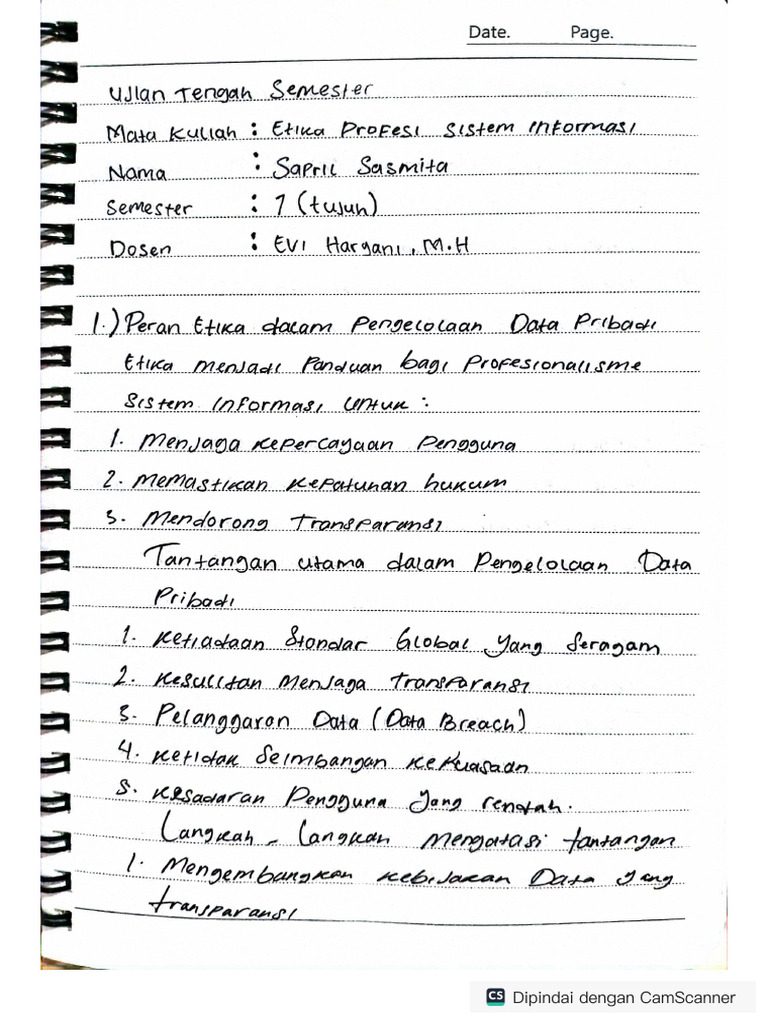 Date. Page.
Ujian Tengah Semester
Mata Kuliah : Etika Profesi Sistem Informasi
Nama : Sapril Sasmita
Semester : 7 (tujuh)
Dosen : Evi Hargani, M.H
1.) Peran Etika dalam Pengelolaan Data Pribadi
Etika menjadi Panduan bagi Profesionalisme
Sistem Informasi untuk :
1. Menjaga kepercayaan Pengguna
2. Memastikan kepatuhan hukum
3. Mendorong Transparansi
Tantangan utama dalam Pengelolaan Data
Pribadi
1. Ketiadaan Standar Global yang Seragam
2. Kesulitan Menjaga transparansi
3. Pelanggaran Data (Data Breach)
4. Ketidak Seimbangan kekuasaan
5. Kesadaran Pengguna yang rendah.
Langkah - Langkah mengatasi tantangan
1. Mengembangkan kebijakan Data yang
transparansi
CS Dipindai dengan CamScanner